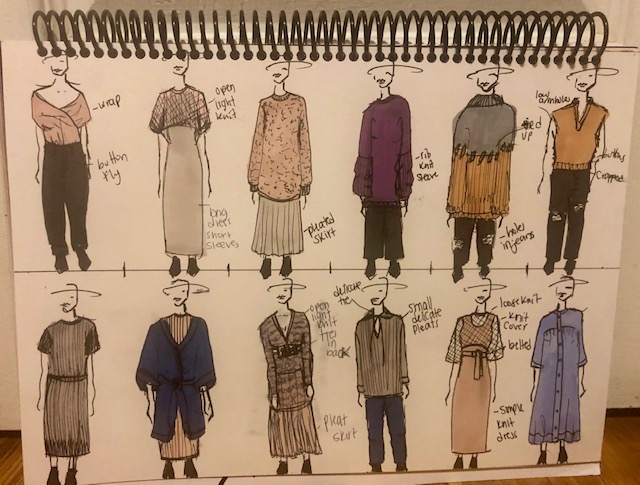 wrap
button
fly
open
light
knit
long
dress
short
sleeves
pleated
skirt
rib
knit
sleeve
tied
up
holes
in jeans
low
armholes
buttons
cropped
open
light
knit
tie
in
back
pleat
skirt
delicate
tie
small
delicate
pleats
loose knit
knit
cover
belted
simple
knit
dress